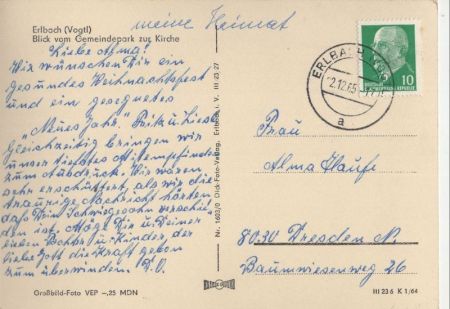 Erlbach (Vogtl)
Blick vom Gemeindepark zur Kirche
meine Heimat
Liebe Alma!
Wir wünschen Dir ein
gesundes Weihnachtsfest
und ein gesegnetes
"Neues Jahr." Fritz u. Liesel
Gleichzeitig bringen wir
unser tiefstes Mitempfinden
zum Ausdruck. Wir waren
sehr erschüttert, als wir die
traurige Nachricht hörten,
daß Dein Schwiegersohn verschie-
den ist. Möge Dir u. Deiner
lieben Tochter u. Kinder, der
liebe Gott die Kraft geben
zum überwinden. D.O.
Großbild-Foto VEP –,25 MDN
Nr. 1603/0 Dick-Foto-Verlag, Erlbach i. V. III 23 27
ERLBACH
2.12.65
a
10
Frau
Alma
8030 Dresden N.
Baumwiesenweg 26
III 23 6 K 1/64